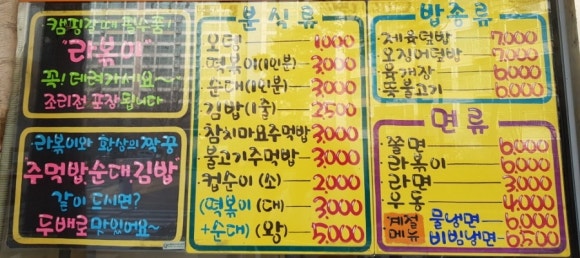 캠핑갈때 필수품!
"라볶이"
꼭! 데려가세요~
조리전 포장됩니다
라볶이와 환상의 짝꿍
"주먹밥,순대,김밥"
같이 드시면?
두배로 맛있어요~
분식류
오뎅 1,000
떡볶이(1인분) 3,000
순대(1인분) 3,000
김밥(1줄) 2,500
참치마요주먹밥 3,000
불고기주먹밥 3,000
컵순이(소) 2,000
(떡볶이 (대) 3,000
+순대) (왕) 5,000
밥종류
제육덮밥 7,000
오징어덮밥 7,000
육개장 6,000
뚝불고기 6,000
면류
쫄면 6,000
라볶이 6,000
라면 3,000
우동 4,000
계절메뉴 물냉면 6,000
비빔냉면 6,500